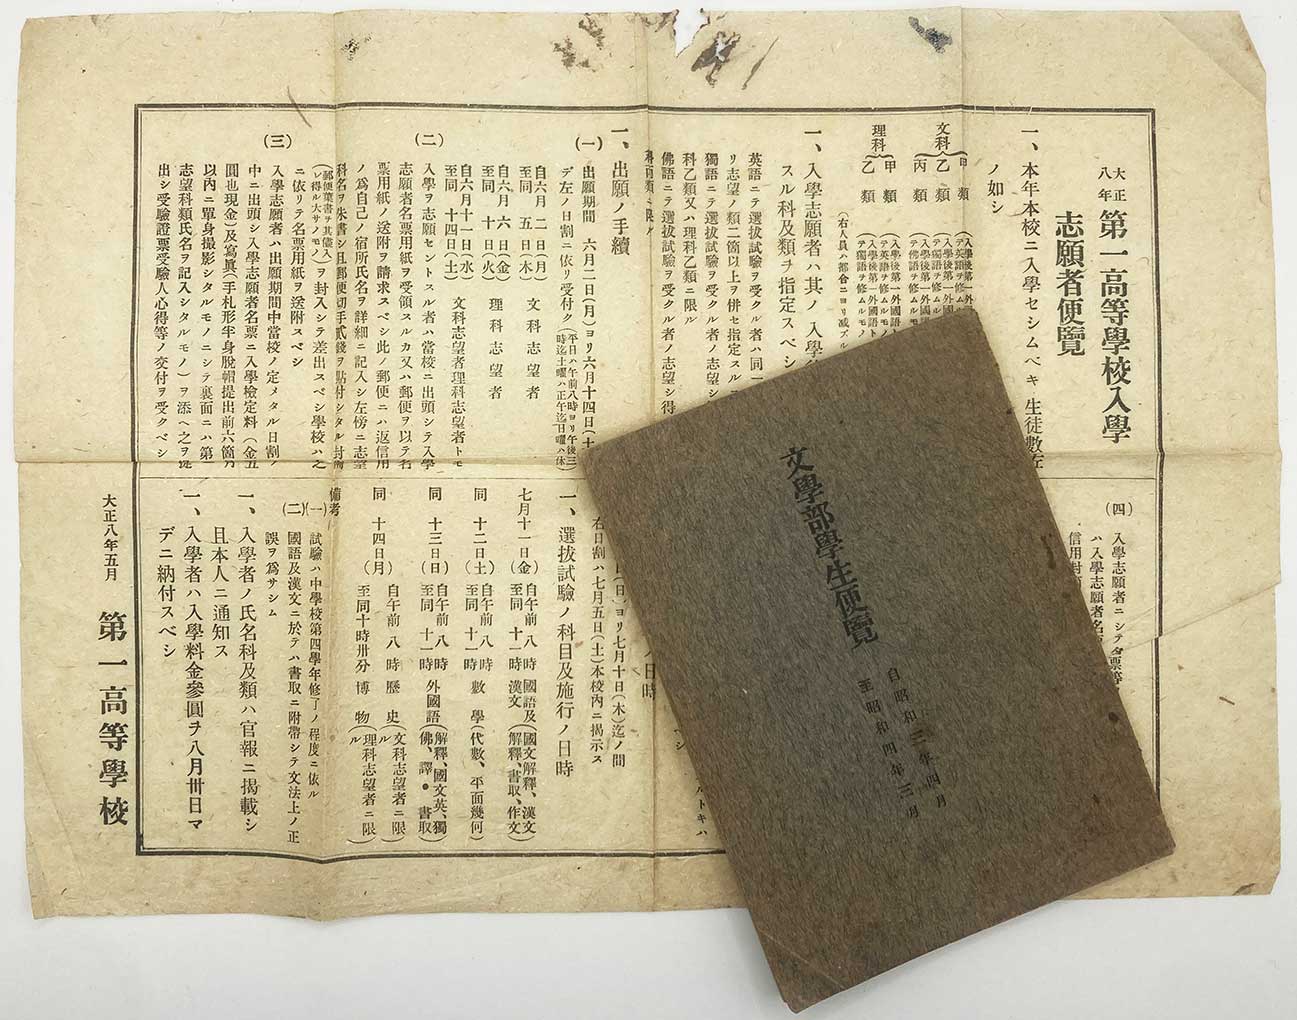 大正八年 第一高等學校入學
志願者便覽
一、本年本校ニ入學セシムベキ生徒數左
ノ如シ
文科
甲類
乙類
丙類
理科
甲類
乙類
(右人員ハ都合ニヨリ減ズル
一、入學志願者ハ其ノ入學
スル科及類ヲ指定スベシ
英語ニテ選拔試驗ヲ受クル者ハ同一
リ志望ノ類二箇以上ヲ併セ指定スル
獨語ニテ選拔試驗ヲ受クル者ノ志望シ
科乙類又ハ理科乙類ニ限ル
佛語ニテ選拔試驗ヲ受クル者ノ志望シ得
科丙類ニ限ル
一、出願ノ手續
(一) 出願期間 六月二日(月)ヨリ六月十四日(土
デ左ノ日割ニ依リ受付ク(平日ハ午前八時ヨリ午後三時迄土曜ハ正午迄日曜ハ休)
自六月二日(月)
至同 五日(木) 文科志望者
自六月六日(金)
至同 十日(火) 理科志望者
自六月十一日(水)
至同 十四日(土) 文科志望者理科志望者トモ
(二) 入學ヲ志願セントスル者ハ當校ニ出頭シテ入學
志願者名票用紙ヲ受領スルカ又ハ郵便ヲ以テ名
票用紙ノ送附ヲ請求スベシ此ノ郵便ニハ返信用
ノ爲自己ノ宿所氏名ヲ詳細ニ記入シ左傍ニ志望
科名ヲ朱書シ且郵便切手貳錢ヲ貼付シタル封筒
(郵便葉書ヲ其儘入レ得ル大サノモノ)ヲ封入シテ差出スベシ學校ハ之
ニ依リテ名票用紙ヲ送附スベシ
(三) 入學志願者ハ出願期間中當校ノ定メタル日割ノ
中ニ出頭シ入學志願者名票ニ入學檢定料(金五
圓也現金)及寫眞(手札形半身脫帽提出前六箇月
以內ニ單身撮影シタルモノニシテ裏面ニハ第一
志望科類氏名ヲ記入シタルモノ)ヲ添ヘ之ヲ提
出シ受驗證票受驗人心得等ノ交付ヲ受クベシ
(四) 入學志願者ニシテ名票等
ハ入學志願者名
信用封筒
右日割ハ七月五日(土)本校內ニ揭示ス
日(日)ヨリ七月十日(木)迄ノ間
一、選拔試驗ノ科目及施行ノ日時
七月十一日(金) 自午前八時至同十一時 國語及漢文(國文解釋、漢文解釋、書取、作文)
同 十二日(土) 自午前八時至同十一時 數學(代數、平面幾何)
同 十三日(日) 自午前八時至同十一時 外國語(解釋、國文英、獨佛、譯・書取)
同 十四日(月) 自午前八時至同十時卅分 歷史(文科志望者ニ限ル)
博物(理科志望者ニ限ル)
備考
(一) 試驗ハ中學校第四學年修了ノ程度ニ依ル
(二) 國語及漢文ニ於テハ書取ニ附帶シテ文法上ノ正
誤ヲ爲サシム
一、入學者ノ氏名科及類ハ官報ニ揭載シ
且本人ニ通知ス
一、入學者ハ入學料金參圓ヲ八月卅日マ
デニ納付スベシ
大正八年五月
第一高等學校
文學部學生便覽
自昭和三年四月
至昭和四年三月